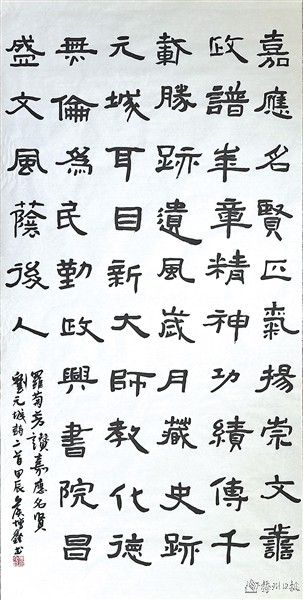 嘉應名賢正氣揚崇文譱
政譜華章精神功績傳千
載勝跡遺風歲月藏史跡
元城耳目新大師教化德
無倫為民勤政興書院昌
盛文風蔭後人
羅菊芳讚嘉應名賢
劉元城詩二首甲辰書
梅州日报